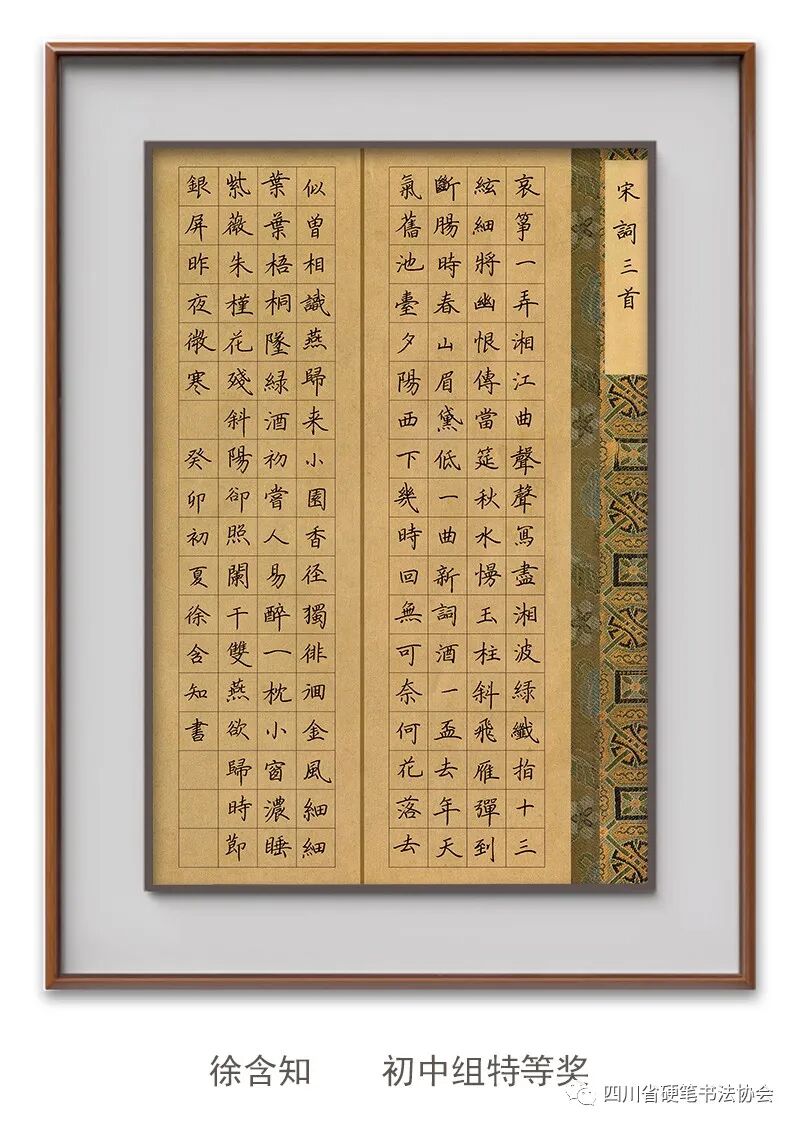 宋詞三首
哀筝一弄湘江曲聲聲寫盡湘波綠纖指十三
絃細將幽恨傳當筵秋水慢玉柱斜飛雁彈到
斷腸時春山眉黛低一曲新詞酒一盃去年天
氣舊池臺夕陽西下幾時回無可奈何花落去
似曾相識燕歸来小園香径獨徘徊金風細細
葉葉梧桐墜綠酒初嘗人易醉一枕小窗濃睡
紫薇朱槿花殘斜陽卻照闌干雙燕欲歸時節
銀屏昨夜微寒 癸卯初夏徐含知書
徐含知 初中组特等奖
四川省硬笔书法协会